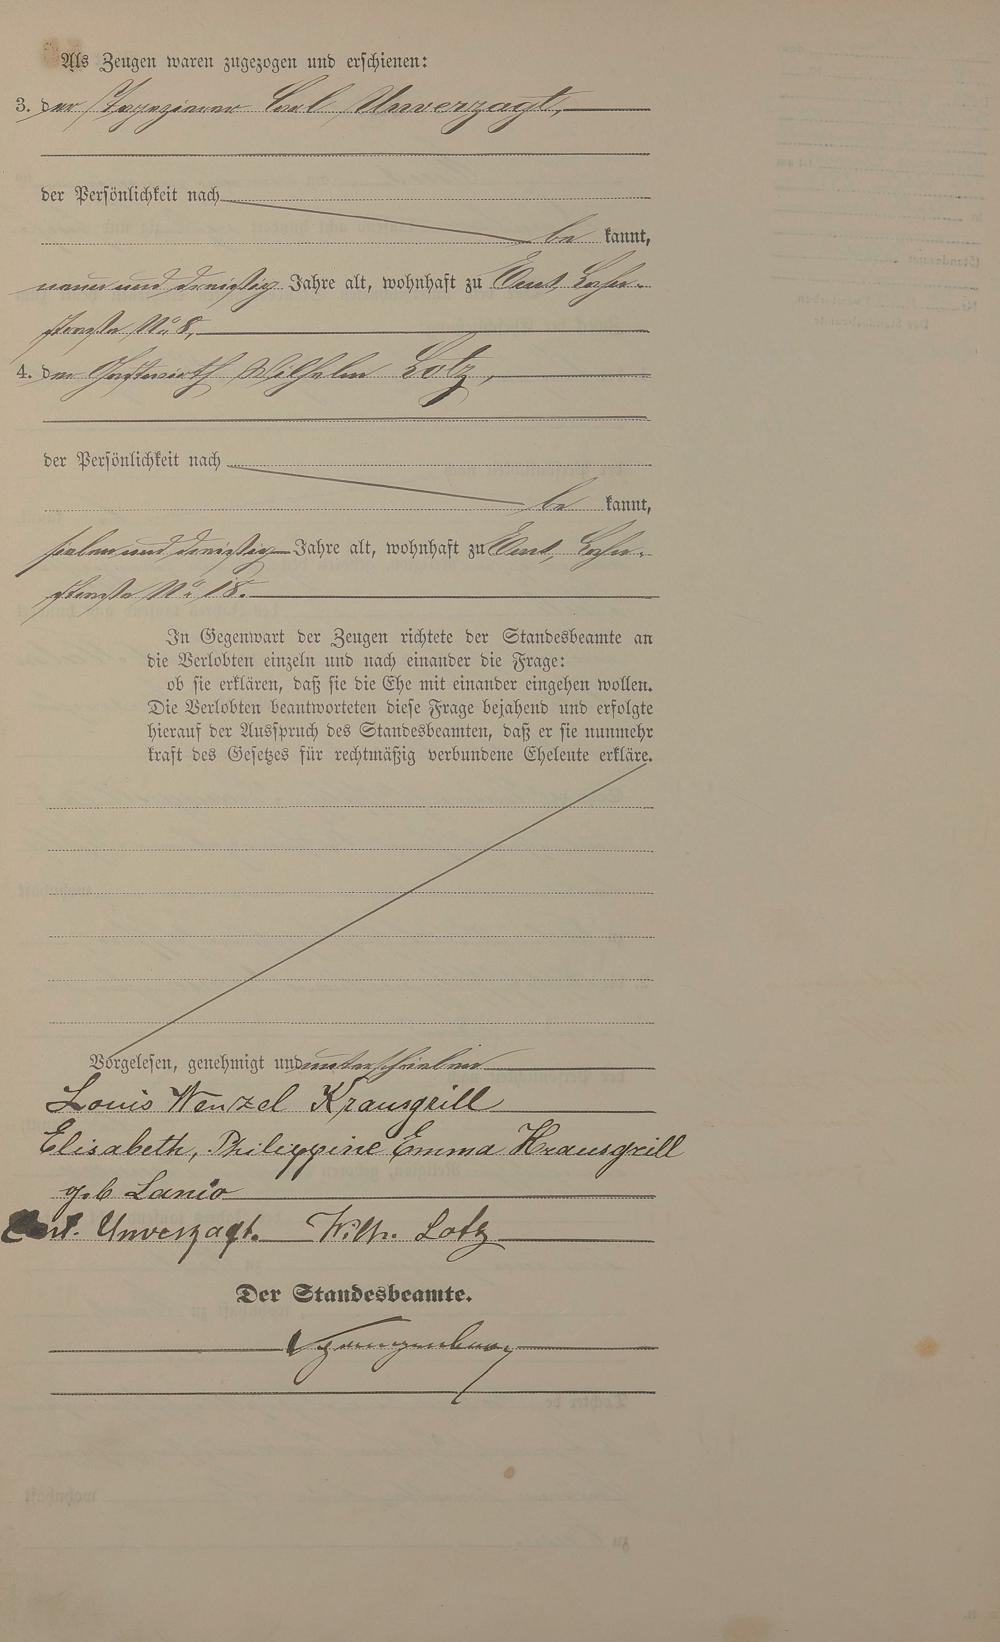 Als Zeugen waren zugezogen und erschienen:
3. der Tapezierer Carl Unverzagt,
der Persönlichkeit nach
be kannt,
neun und dreißig Jahre alt, wohnhaft zu Ems, Lahn-
straße No 8,
4. der Gastwirth Wilhelm Lotz,
der Persönlichkeit nach
be kannt,
sieben und dreißig Jahre alt, wohnhaft zu Ems, Lahn-
straße No 18.
In Gegenwart der Zeugen richtete der Standesbeamte an
die Verlobten einzeln und nach einander die Frage:
ob sie erklären, daß sie die Ehe mit einander eingehen wollen.
Die Verlobten beantworteten diese Frage bejahend und erfolgte
hierauf der Ausspruch des Standesbeamten, daß er sie nunmehr
kraft des Gesetzes für rechtmäßig verbundene Eheleute erkläre.
Vorgelesen, genehmigt und unterschrieben
Louis Wenzel Krausgrill
Elisabeth, Philippine Emma Krausgrill
geb Lanio
Unverzagt. Wilh. Lotz
Der Standesbeamte.